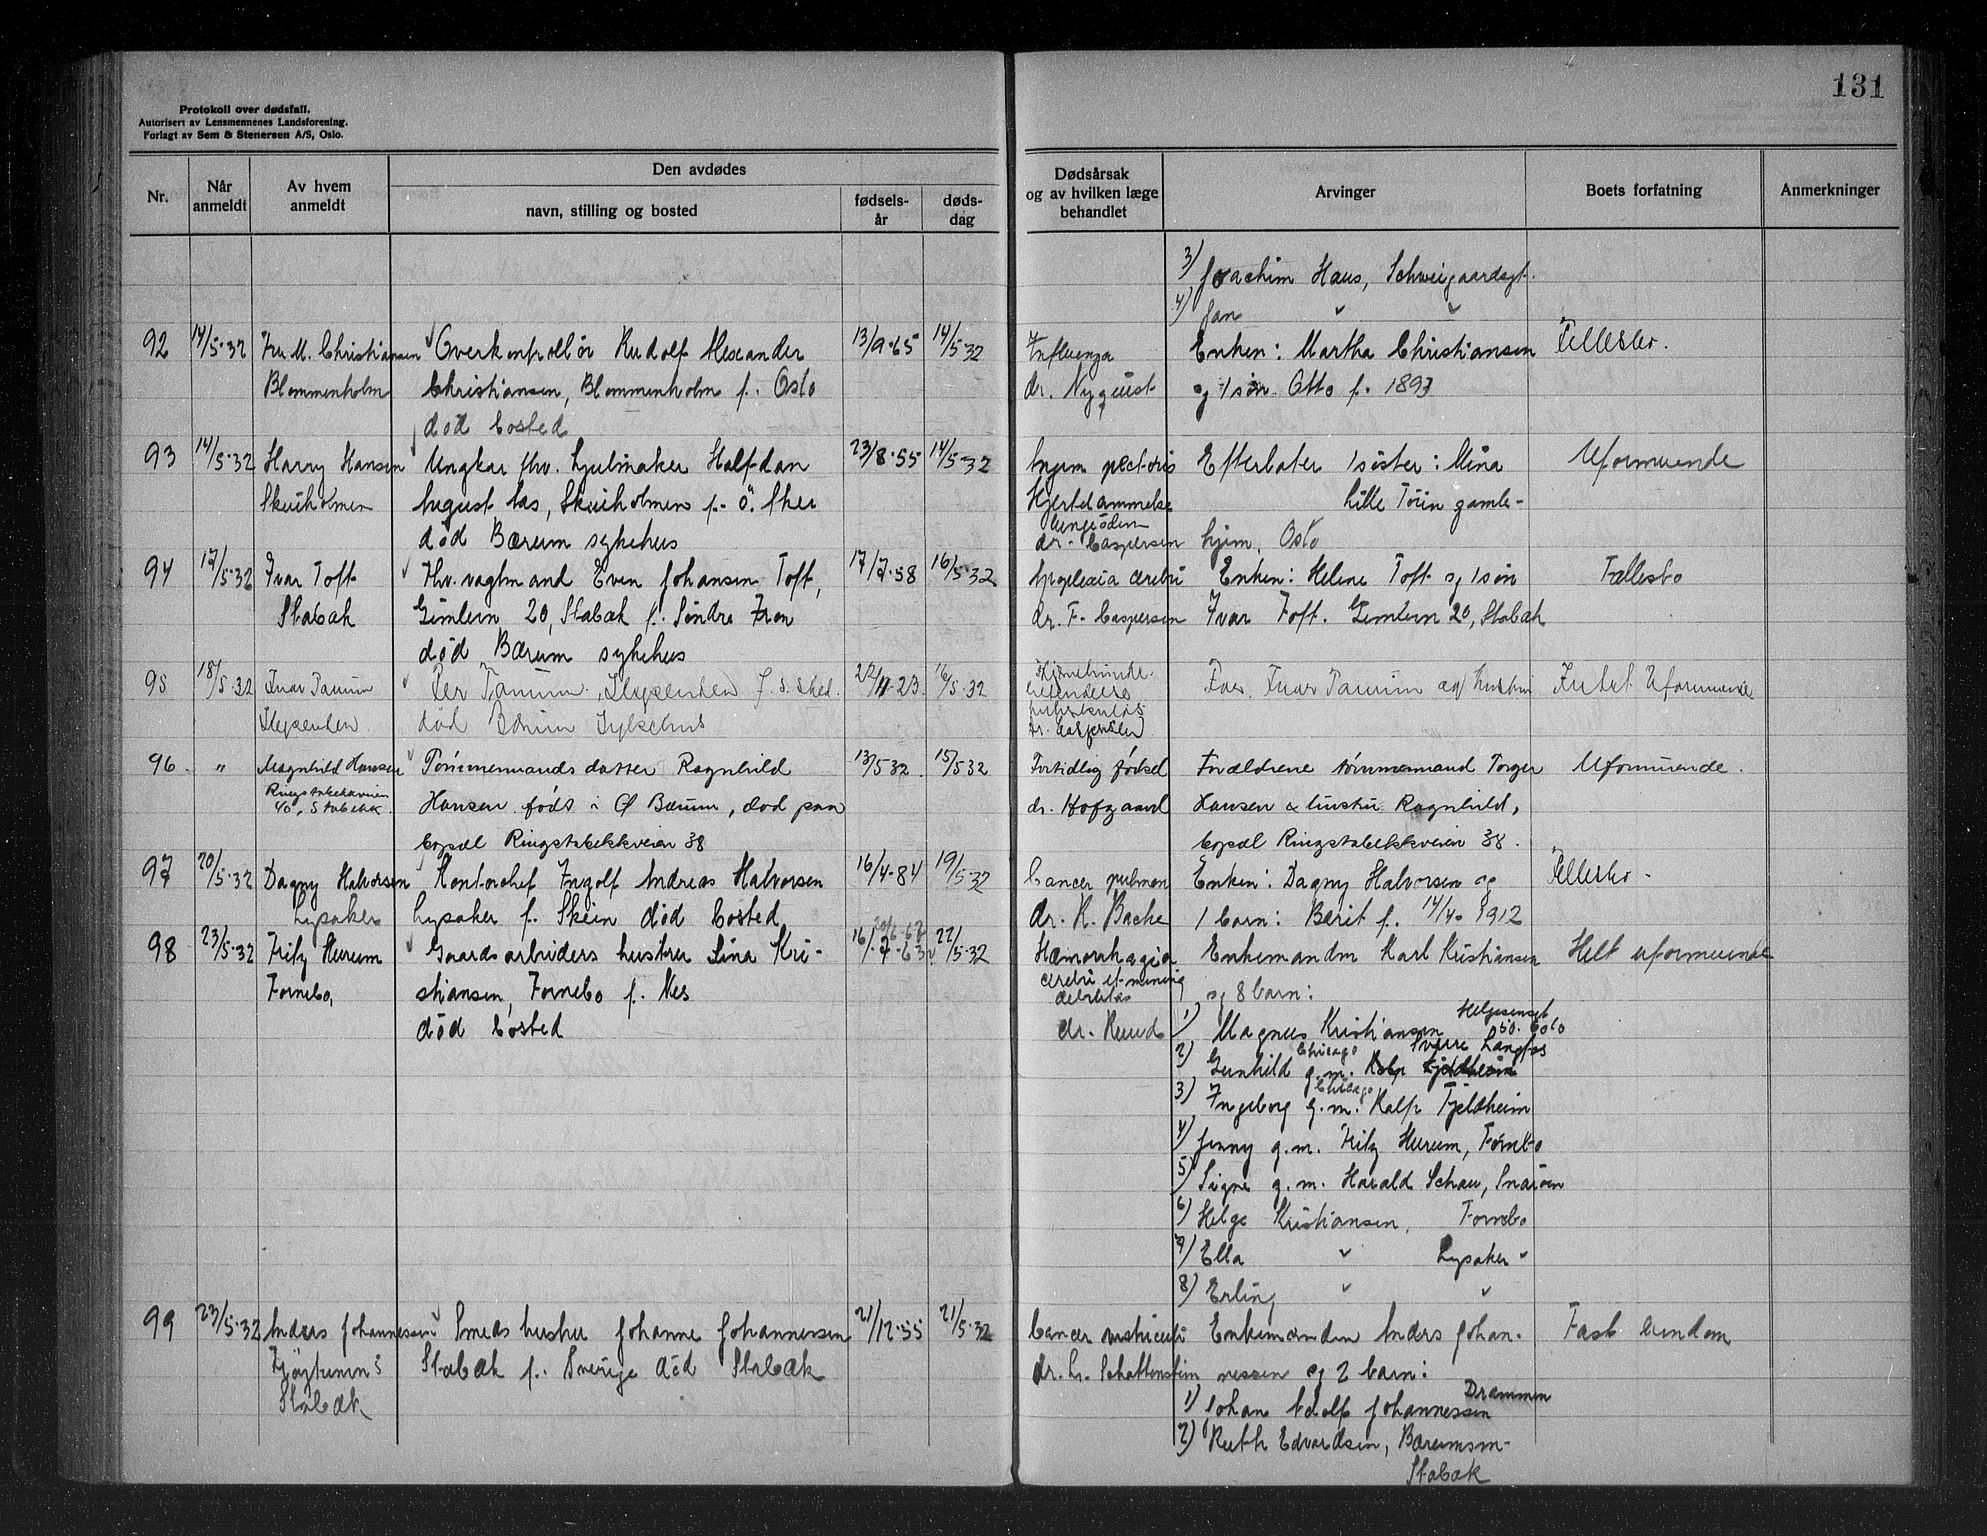 131
Protokoll over dødsfall.
Autorisert av Lensmennenes Landsforening.
Forlagt av Sem & Stenersen A/S, Oslo.
Nr.
Når anmeldt
Av hvem anmeldt
Den avdødes
navn, stilling og bosted
fødsels-år
døds-dag
Dødsårsak og av hvilken læge behandlet
Arvinger
Boets forfatning
Anmerkninger
3) Joachim Haus, Schweigaardsgt.
4) Jan " "
92 14/5-32 Fru M. Christiansen Overkontrollör Rudolf Alexander 13/9-65 14/5-32 Influenza Enken: Martha Christiansen Fellesbo.
Blommenholm Christiansen, Blommenholm f. Oslo dr. Nyquist og 1 sön Otto f. 1893
död bosted
93 14/5-32 Harry Hansen Ungkar fhv. hjulmaker Halfdan 23/8-55 14/5-32 Angina pectoris Efterlater 1 söster: Mina Uformuende
Skuiholmen August Aas, Skuiholmen f. Ö. Aker Hjertelammelse Lille Töien gamle-
död Bærum sykehus lungeödem dr. Caspersen hjem, Oslo
94 17/5-32 Ivar Toft Fhv. vagtmand Even Johansen Toft, 17/7-58 16/5-32 Apoplexia cerebri Enken: Helene Toft og 1 sön Fællesbo
Stabæk Gimlevn 20, Stabæk f. Söndre Fron dr. F. Caspersen Ivar Toft. Gimlevn 20, Stabæk
död Bærum sykehus
95 18/5-32 Ivar Tanum Per Tanum, Slependen f. s. sted. 22/11-23. 16/5-32 Hjernehinde- Far Ivar Tanum og hustru Intet Uformuende
Slependen död Bærum Sykehus betendelse tuberkulös dr. Caspersen
96 " Magnhild Hansen Tömmermands datter Ragnhild 13/5 32. 15/5 32 Fortidlig födsel Forældrene tömmermand Torger Uformuende.
Ringstabekkveien 40, Stabekk. Hansen födt i Ø Bærum, död paa dr. Hofgaard Hansen & hustru Ragnhild,
bopæl Ringstabekkveien 38 bopæl Ringstabekkveien 38.
97 20/5-32 Dagny Halvorsen Kontorchef Ingolf Andreas Halvorsen 16/4-84 19/5-32 Cancer pulmon Enken: Dagny Halvorsen og Fellesbo.
Lysaker Lysaker f. Skien död bosted dr. K. Bache 1 barn: Berit f. 14/4-1912
98 23/5-32 Fritz Hurum Gaardsarbeiders hustru Lina Kri- 16/7-63 22/5-32 Hæmorrhagia Enkemanden Karl Kristiansen Helt uformuende
Fornebo, stiansen, Fornebo f. Nes cerebri et mening og 8 barn:
död bosted debilitas dr. Ruud
1) Magnus Kristiansen Helgesensgt 50. Oslo
2) Gunhild g.m. Sverre Langfos Chicago
3) Ingeborg g.m. Ralp Fjeldheim Chicago
4) Jenny g.m. Fritz Hurum, Fornebo
5) Signe g.m. Harald Schau, Snaröen
6) Helge Kristiansen, Fornebo
7) Ella " Lysaker
8) Erling " "
99 23/5-32 Anders Johannessen Smeds hustru Johanne Johannessen 21/12-55 21/5-32 Cancer ventriculi Enkemanden Anders Johan- Fast eiendom
Stabæk f. Sverige död Stabæk dr. L. Schattenstein nessen og 2 barn:
Stabæk
1) Johan Adolf Johannessen Drammen
2) Ruth Edvardsen, Bærumsvn.
Stabæk